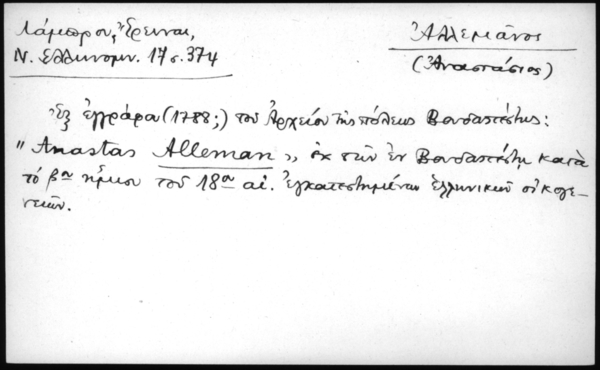 Λάμπρου, Ἔρευναι,
Ν. Ἑλληνομν. 17 σ. 374
Ἀλλεμᾶνος
(Ἀναστάσιος)
Ἐξ ἐγγράφου (1788;) τοῦ Ἀρχείου τῆς πόλεως Βουδαπέστης:
"Anastas Alleman", ἐκ τῶν ἐν Βουδαπέστῃ κατὰ
τὸ βον ἥμισυ τοῦ 18ου αἰ. ἐγκατεστημένων ἑλληνικῶν οἰκογε-
νειῶν.